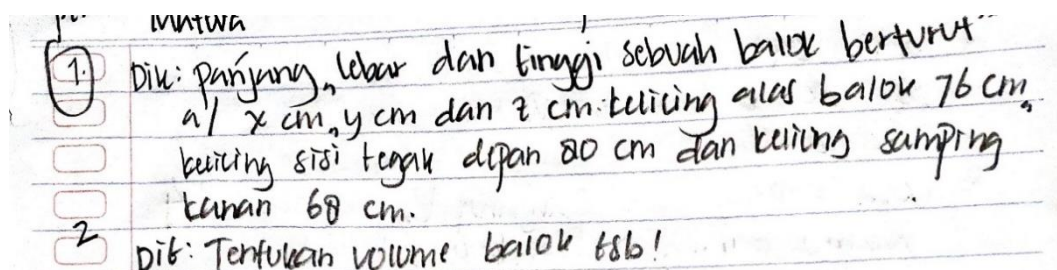 Matwa
1. Dik: Panjang, lebar dan tinggi sebuah balok berturut"
a/ x cm, y cm dan z cm. keliling alas balok 76 cm,
keliling sisi tegak depan 80 cm dan keliling samping
kanan 68 cm.
2 Dit: Tentukan volume balok tsb!